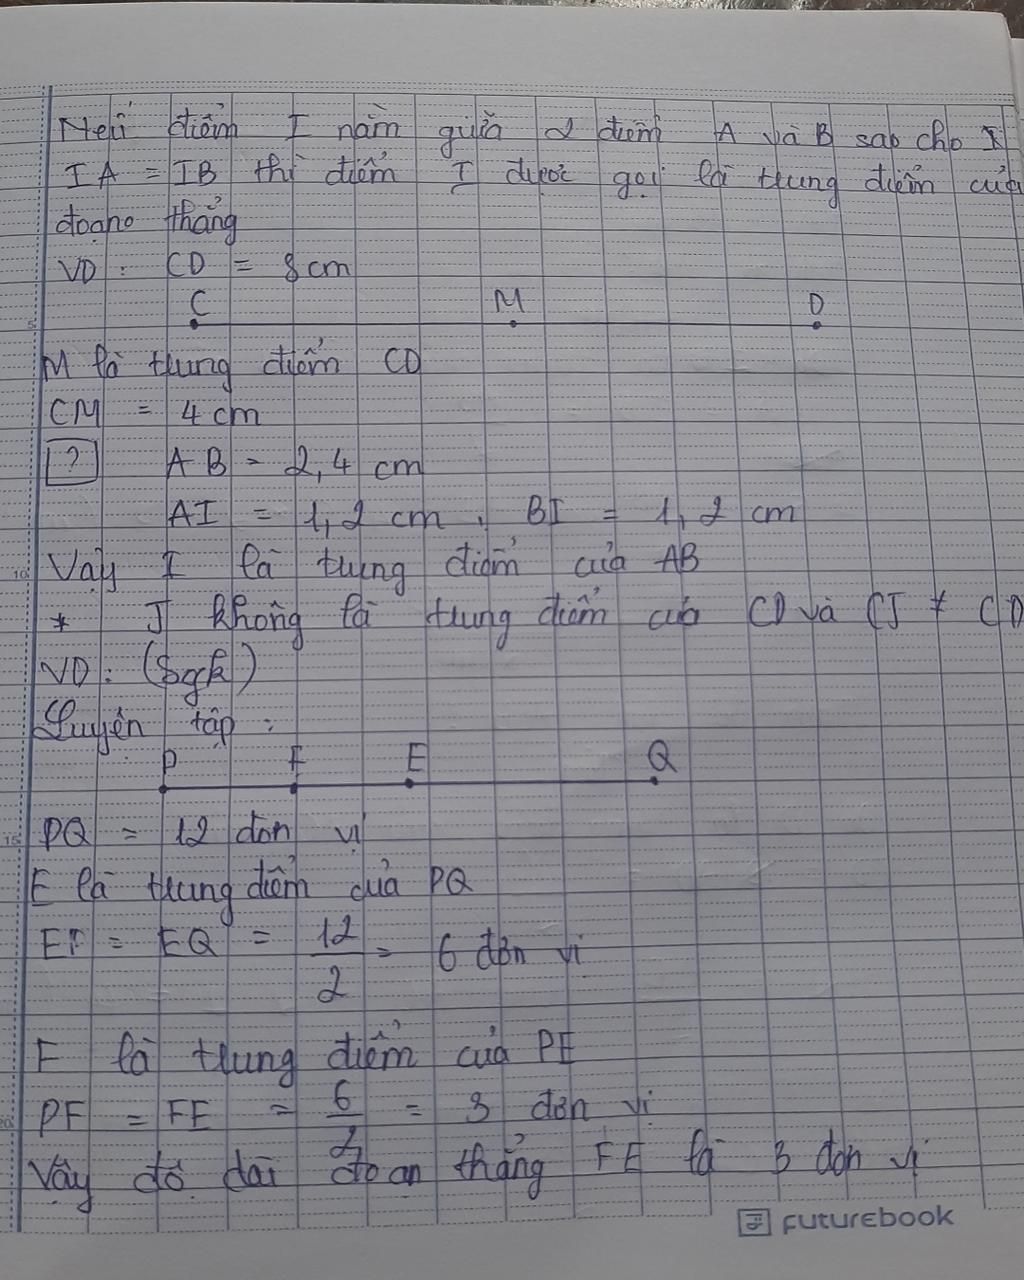 Nếu điểm I nằm giữa 2 điểm A và B sao cho I
IA = IB thì điểm I được gọi là trung điểm của
đoạno thẳng
VD : CD = 8 cm
C M D
M là trung điểm CD
CM = 4 cm
? AB = 2,4 cm
AI = 1,2 cm . BI = 1,2 cm
Vậy I là trung điểm của AB
* J không là trung điểm của CD và CJ ≠ CD
VD : (Sgk)
Luyện tập :
P F E Q
PQ = 12 đơn vị
E là trung điểm của PQ
EP = EQ = 12/2 = 6 đơn vị
F là trung điểm của PE
PF = FE = 6/2 = 3 đơn vị
Vậy độ dài đoạn thẳng FE là 3 đơn vị
FUTUREBOOK